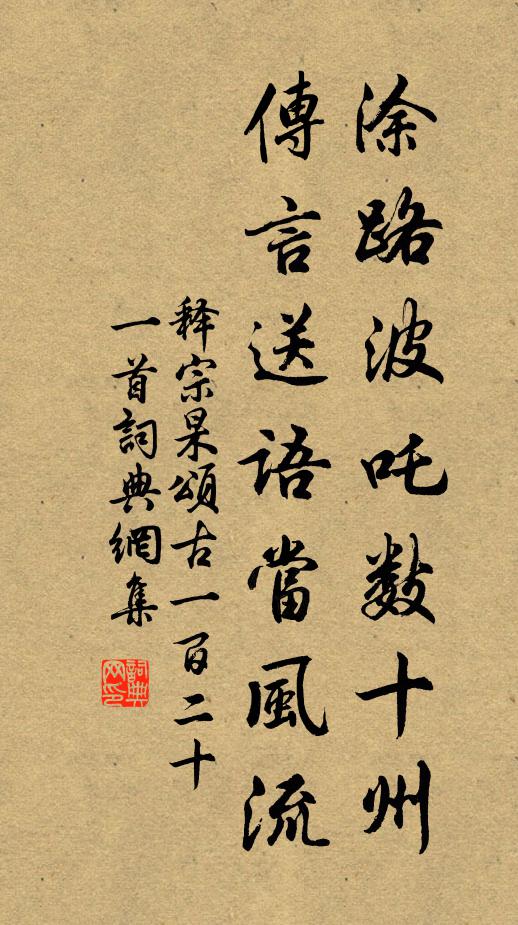 涂路波吒数十州
傳言送語當風流
释宗杲頌古一百二十
一首詞典網集
詞典网印